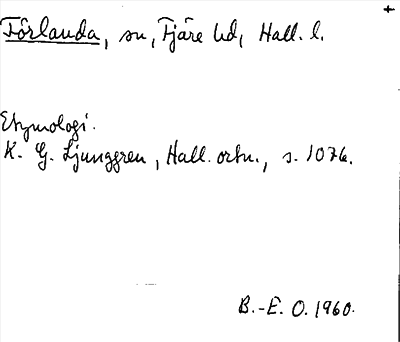 Förlanda, sn, Fjäre hd, Hall. l.
Etymologi.
K. G. Ljunggren, Hall. ortn., s. 107 f.
B.-E. O. 1960.